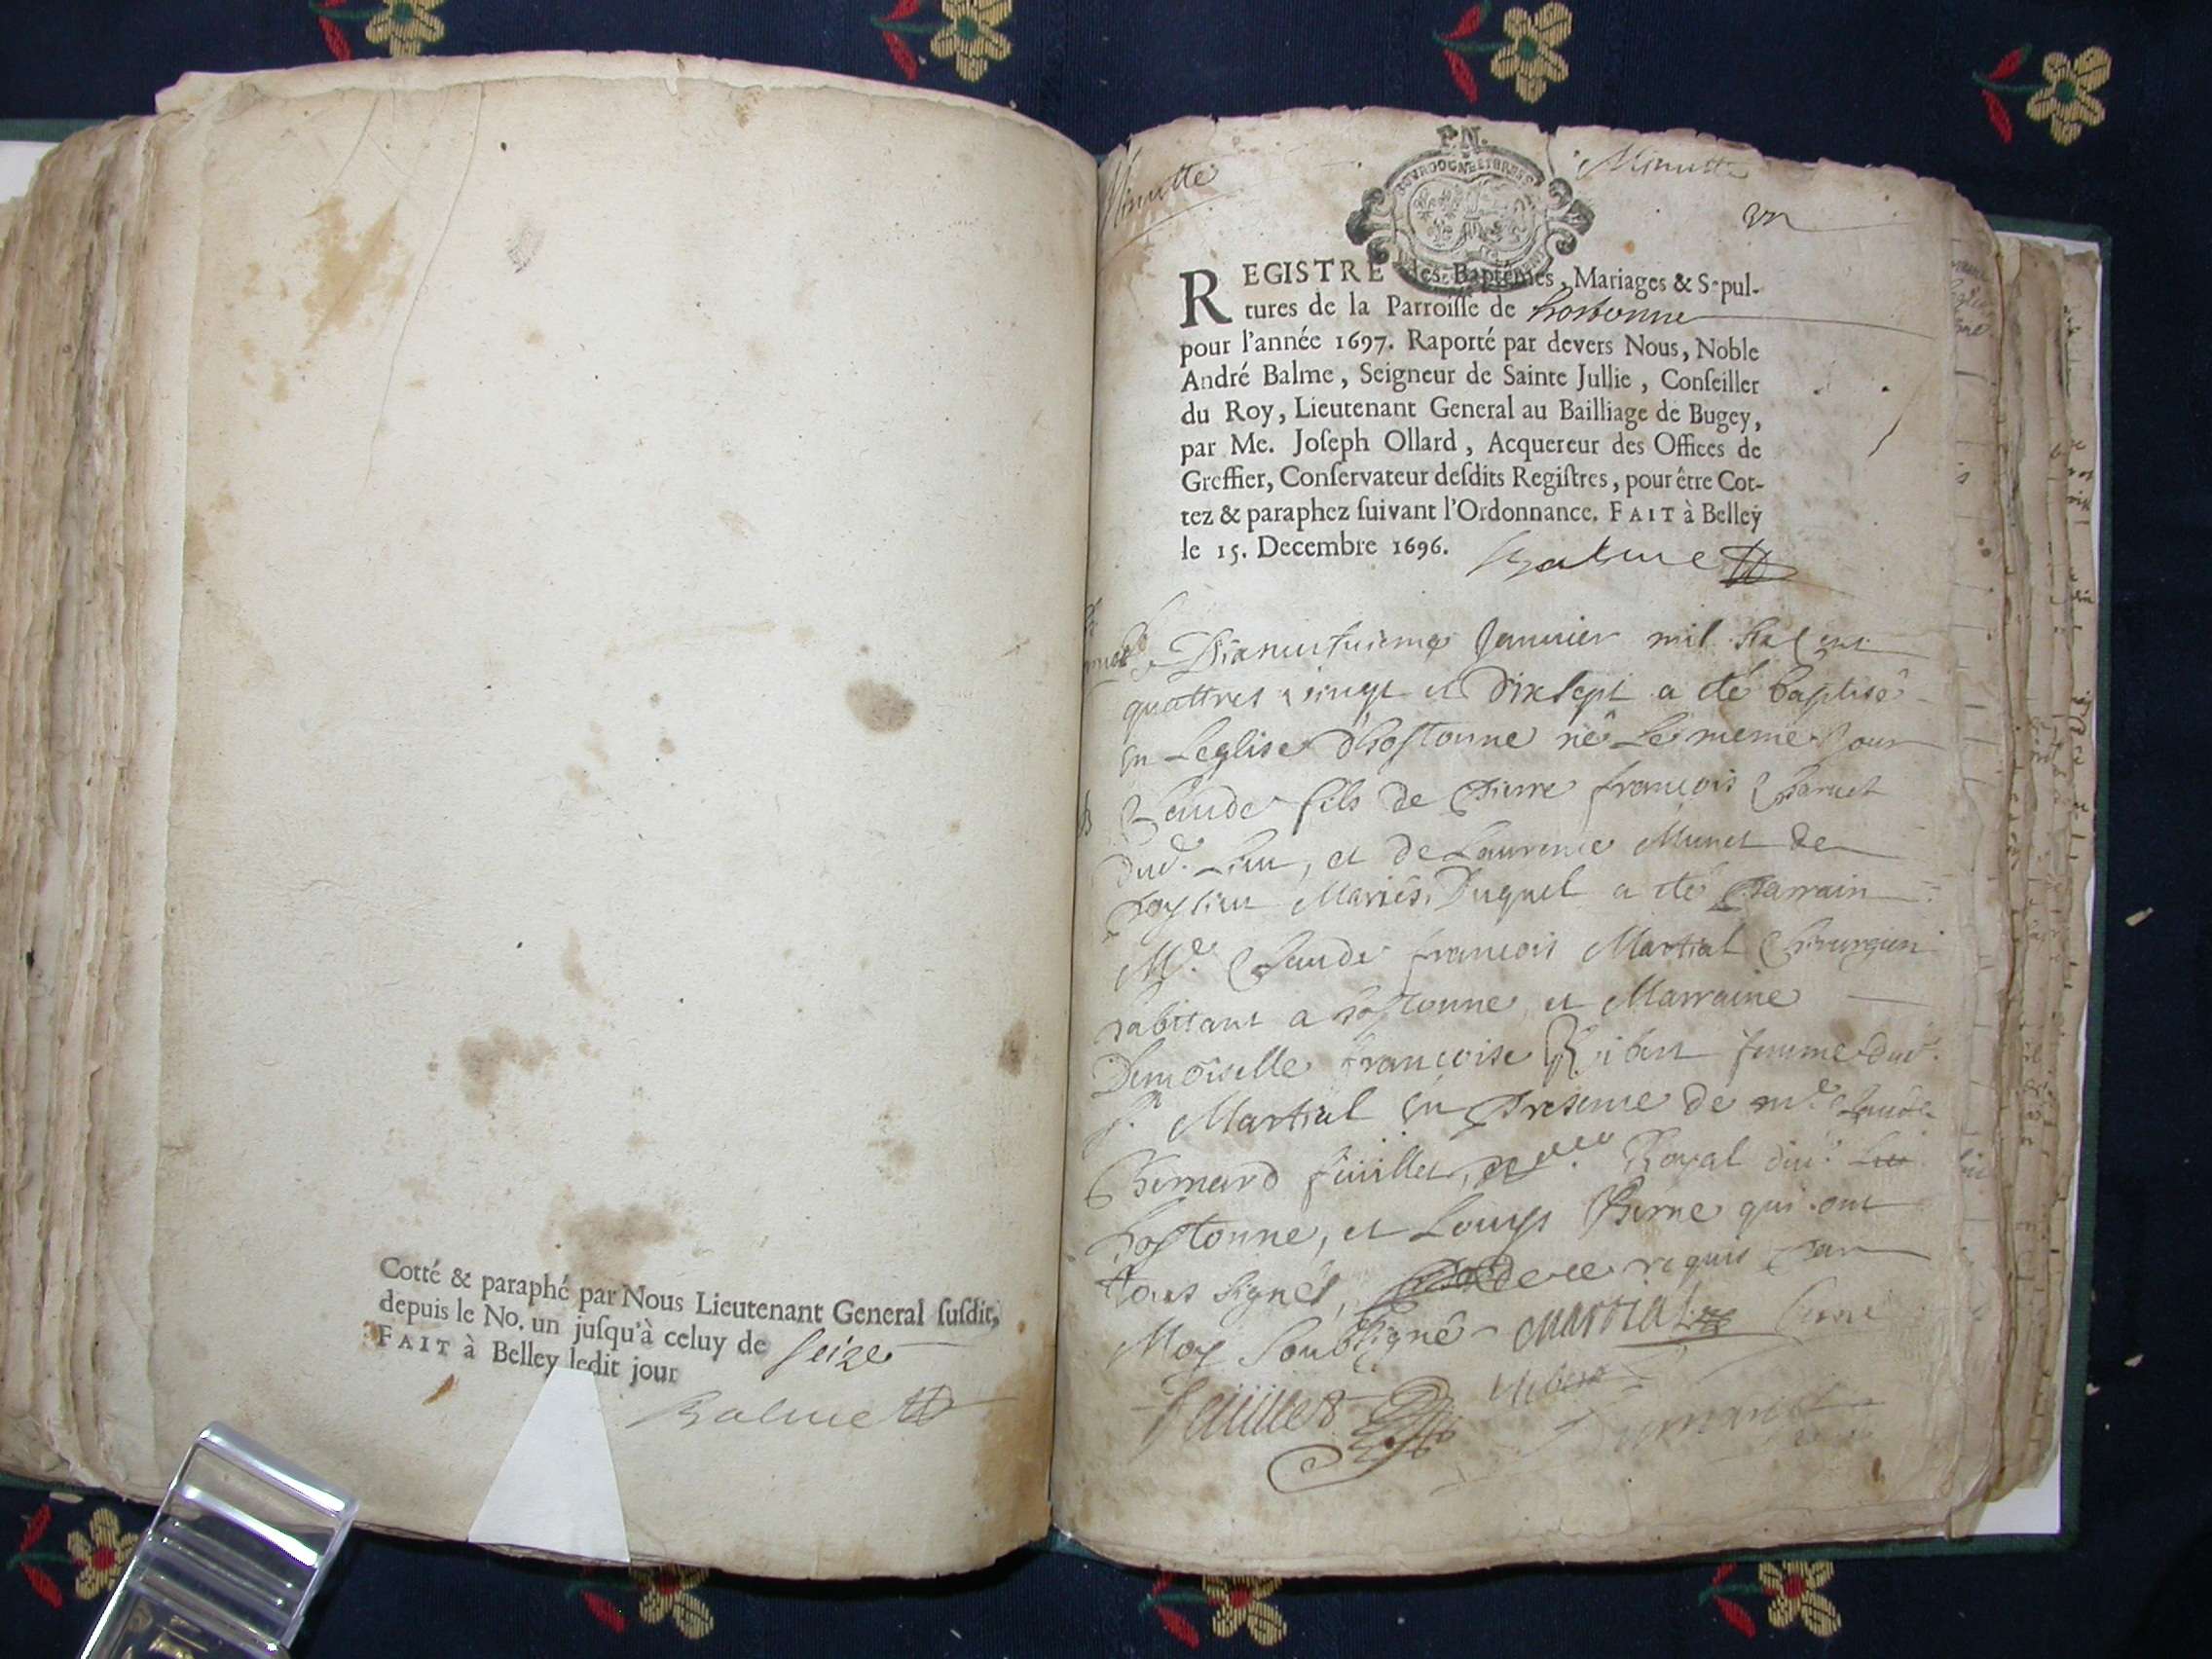 Cotté & paraphé par Nous Lieutenant General ſuſdit,
depuis le No. un juſqu'à celuy de seize
FAIT à Belley ledit jour
Balme
Minutte
P.N.
Minutte
un
REGISTRE des Baptêmes, Mariages & Sepul-
tures de la Parroiſſe de hostonne
pour l'année 1697. Raporté par devers Nous, Noble
André Balme, Seigneur de Sainte Jullie, Conſeiller
du Roy, Lieutenant General au Bailliage de Bugey,
par Me. Joſeph Ollard, Acquereur des Offices de
Greffier, Conſervateur deſdits Regiſtres, pour être Cot-
tez & paraphez ſuivant l'Ordonnance. FAIT à Belley
le 15. Decembre 1696.
Balme
Janvier mil six cent
quattres vingt et dixsept a eté baptisé
en Leglise d'hostonne né Le meme Jour
Claude fils de Pierre françois
dud. Lieu, et de Laurence Munet de
Mariés, Duquel a eté Parrain
Me. Claude françois Martial Chirurgien
habitant a hostonne et Marraine
Demoiselle francoise femme dud.
Sr. Martial en Presence de me. Claude
Bernard feüillet, Royal dud.
hostonne, et Louys Berne qui ont
tous signés, de ce requis par
Moy Soubsigné Martial
feüillet